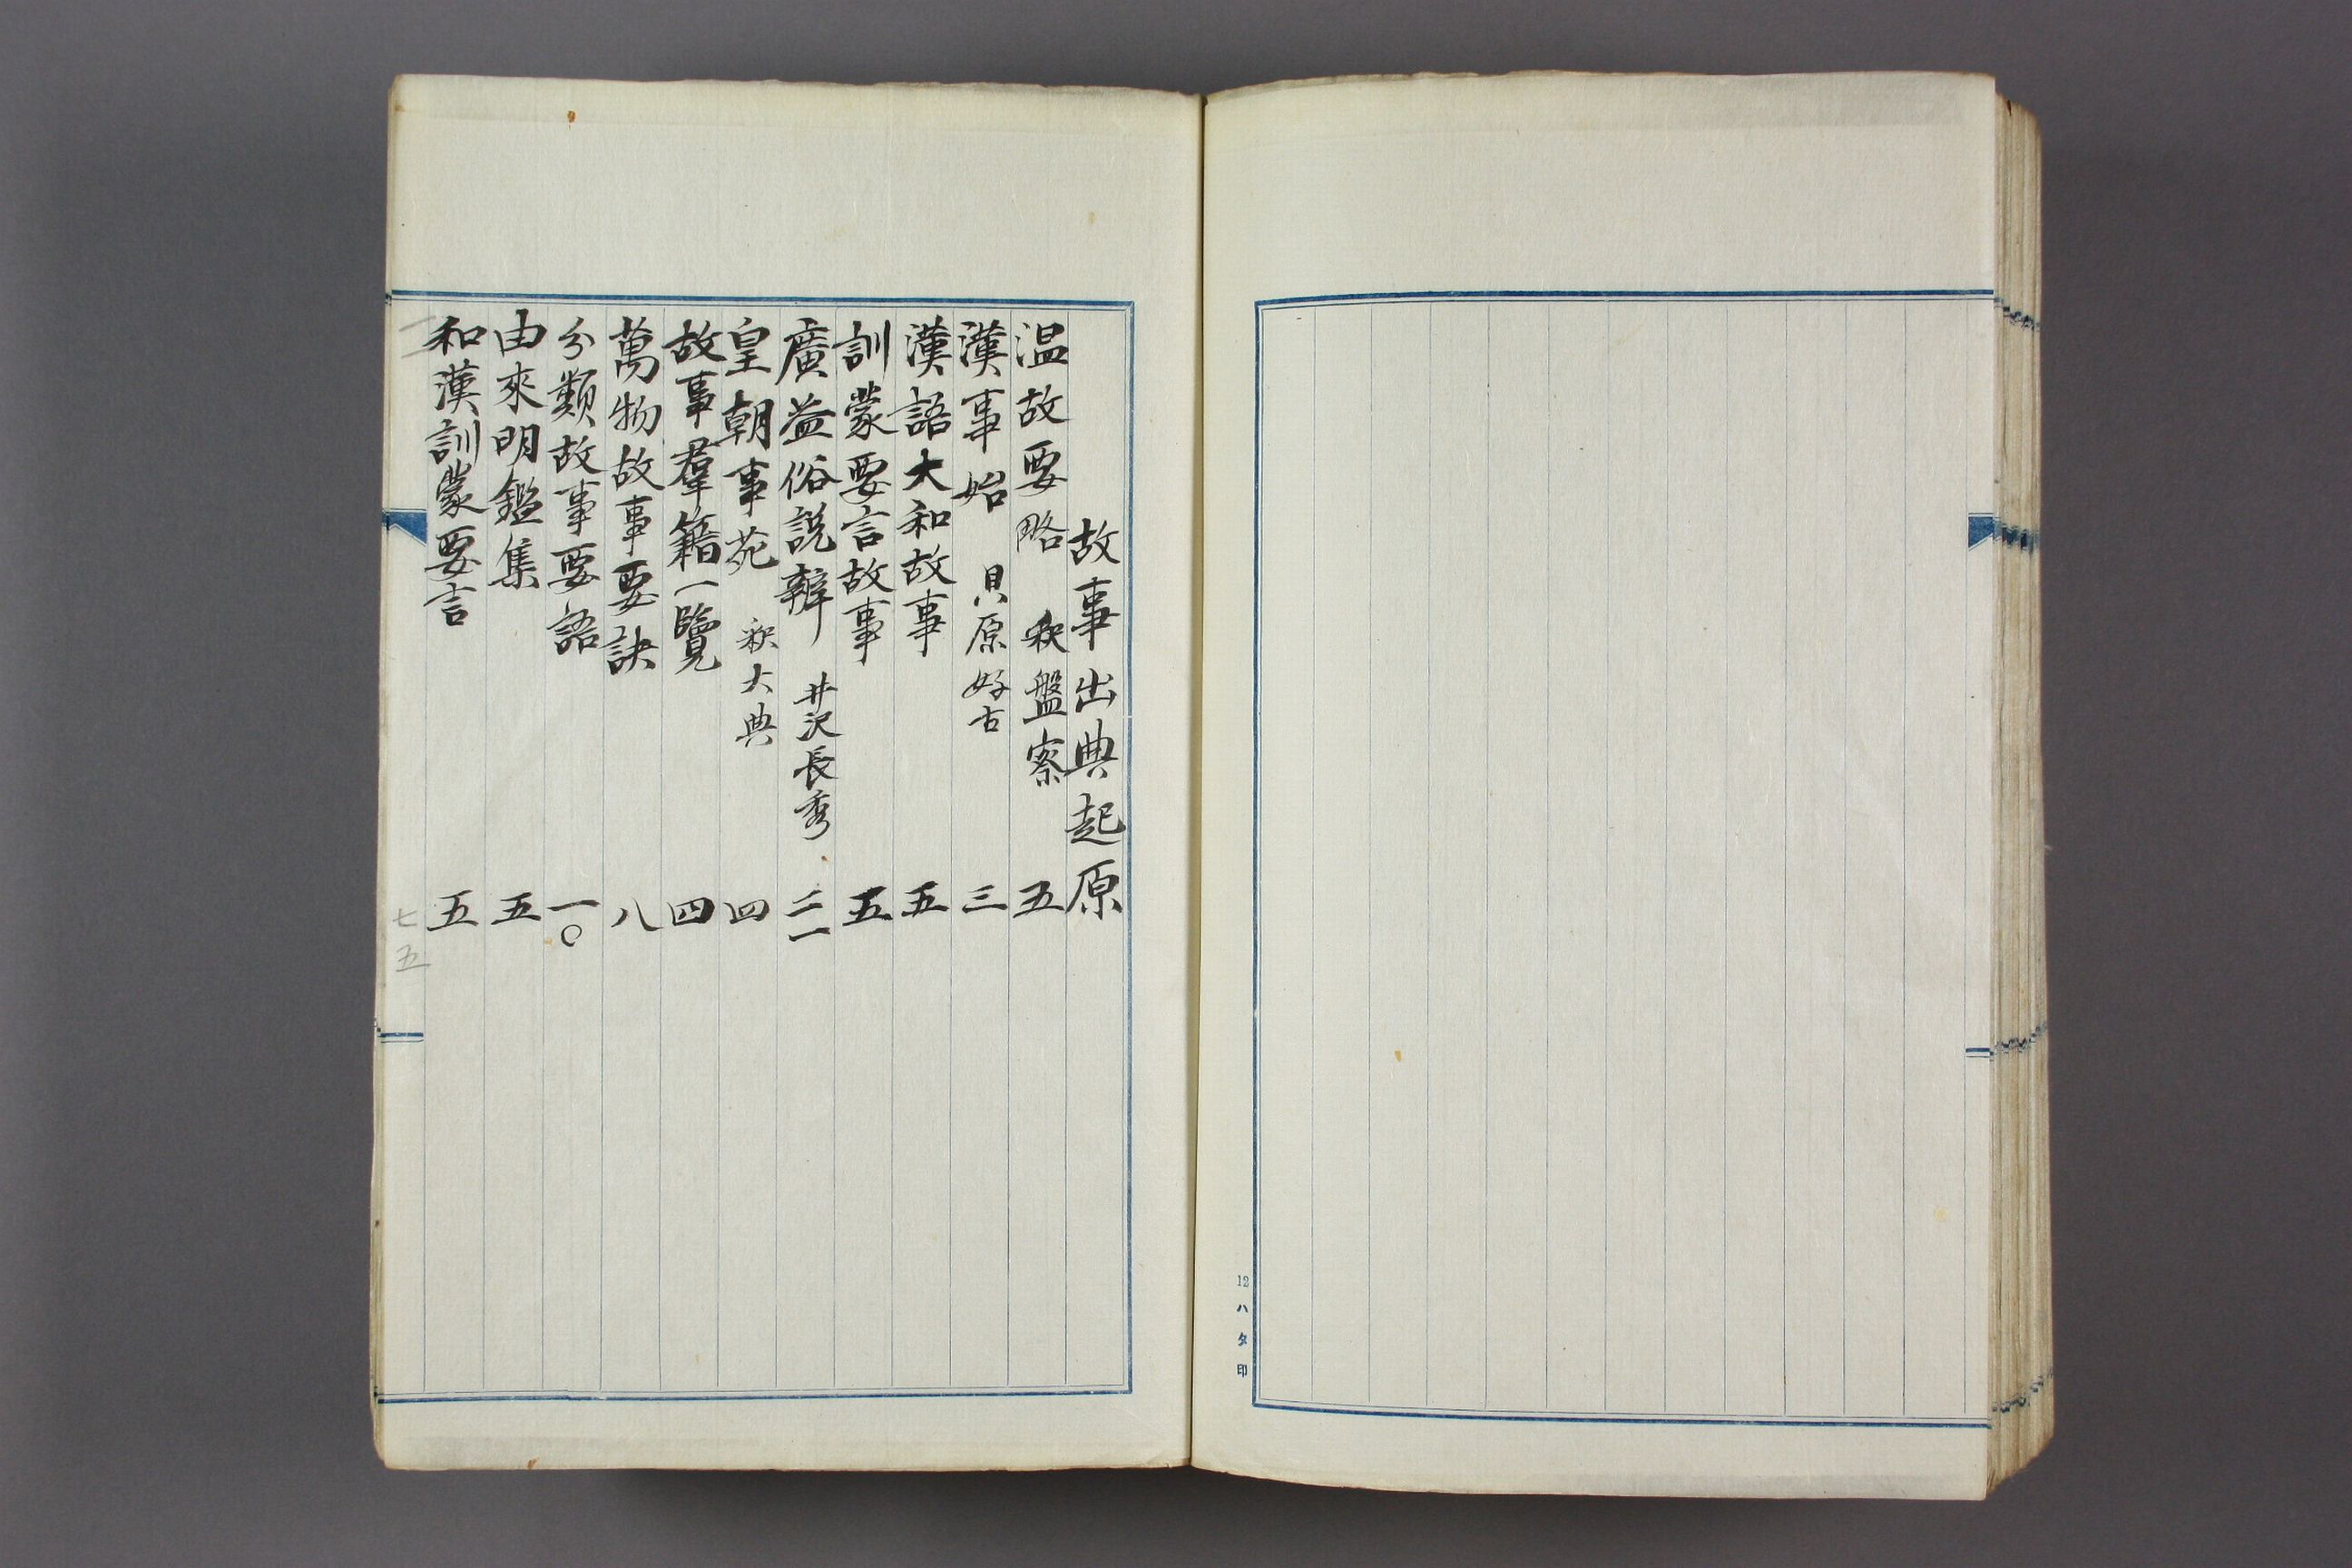 12 ハタ印
故事出典起原
温故要略 釈盤察 五
漢事始 貝原好古 三
漢語大和故事 五
訓蒙要言故事 五
廣益俗説辯 井沢長秀 二一
皇朝事苑 釈大典 四
故事羣籍一覽 四
萬物故事要訣 八
分類故事要語 一〇
由來明鑑集 五
和漢訓蒙要言 五
七五